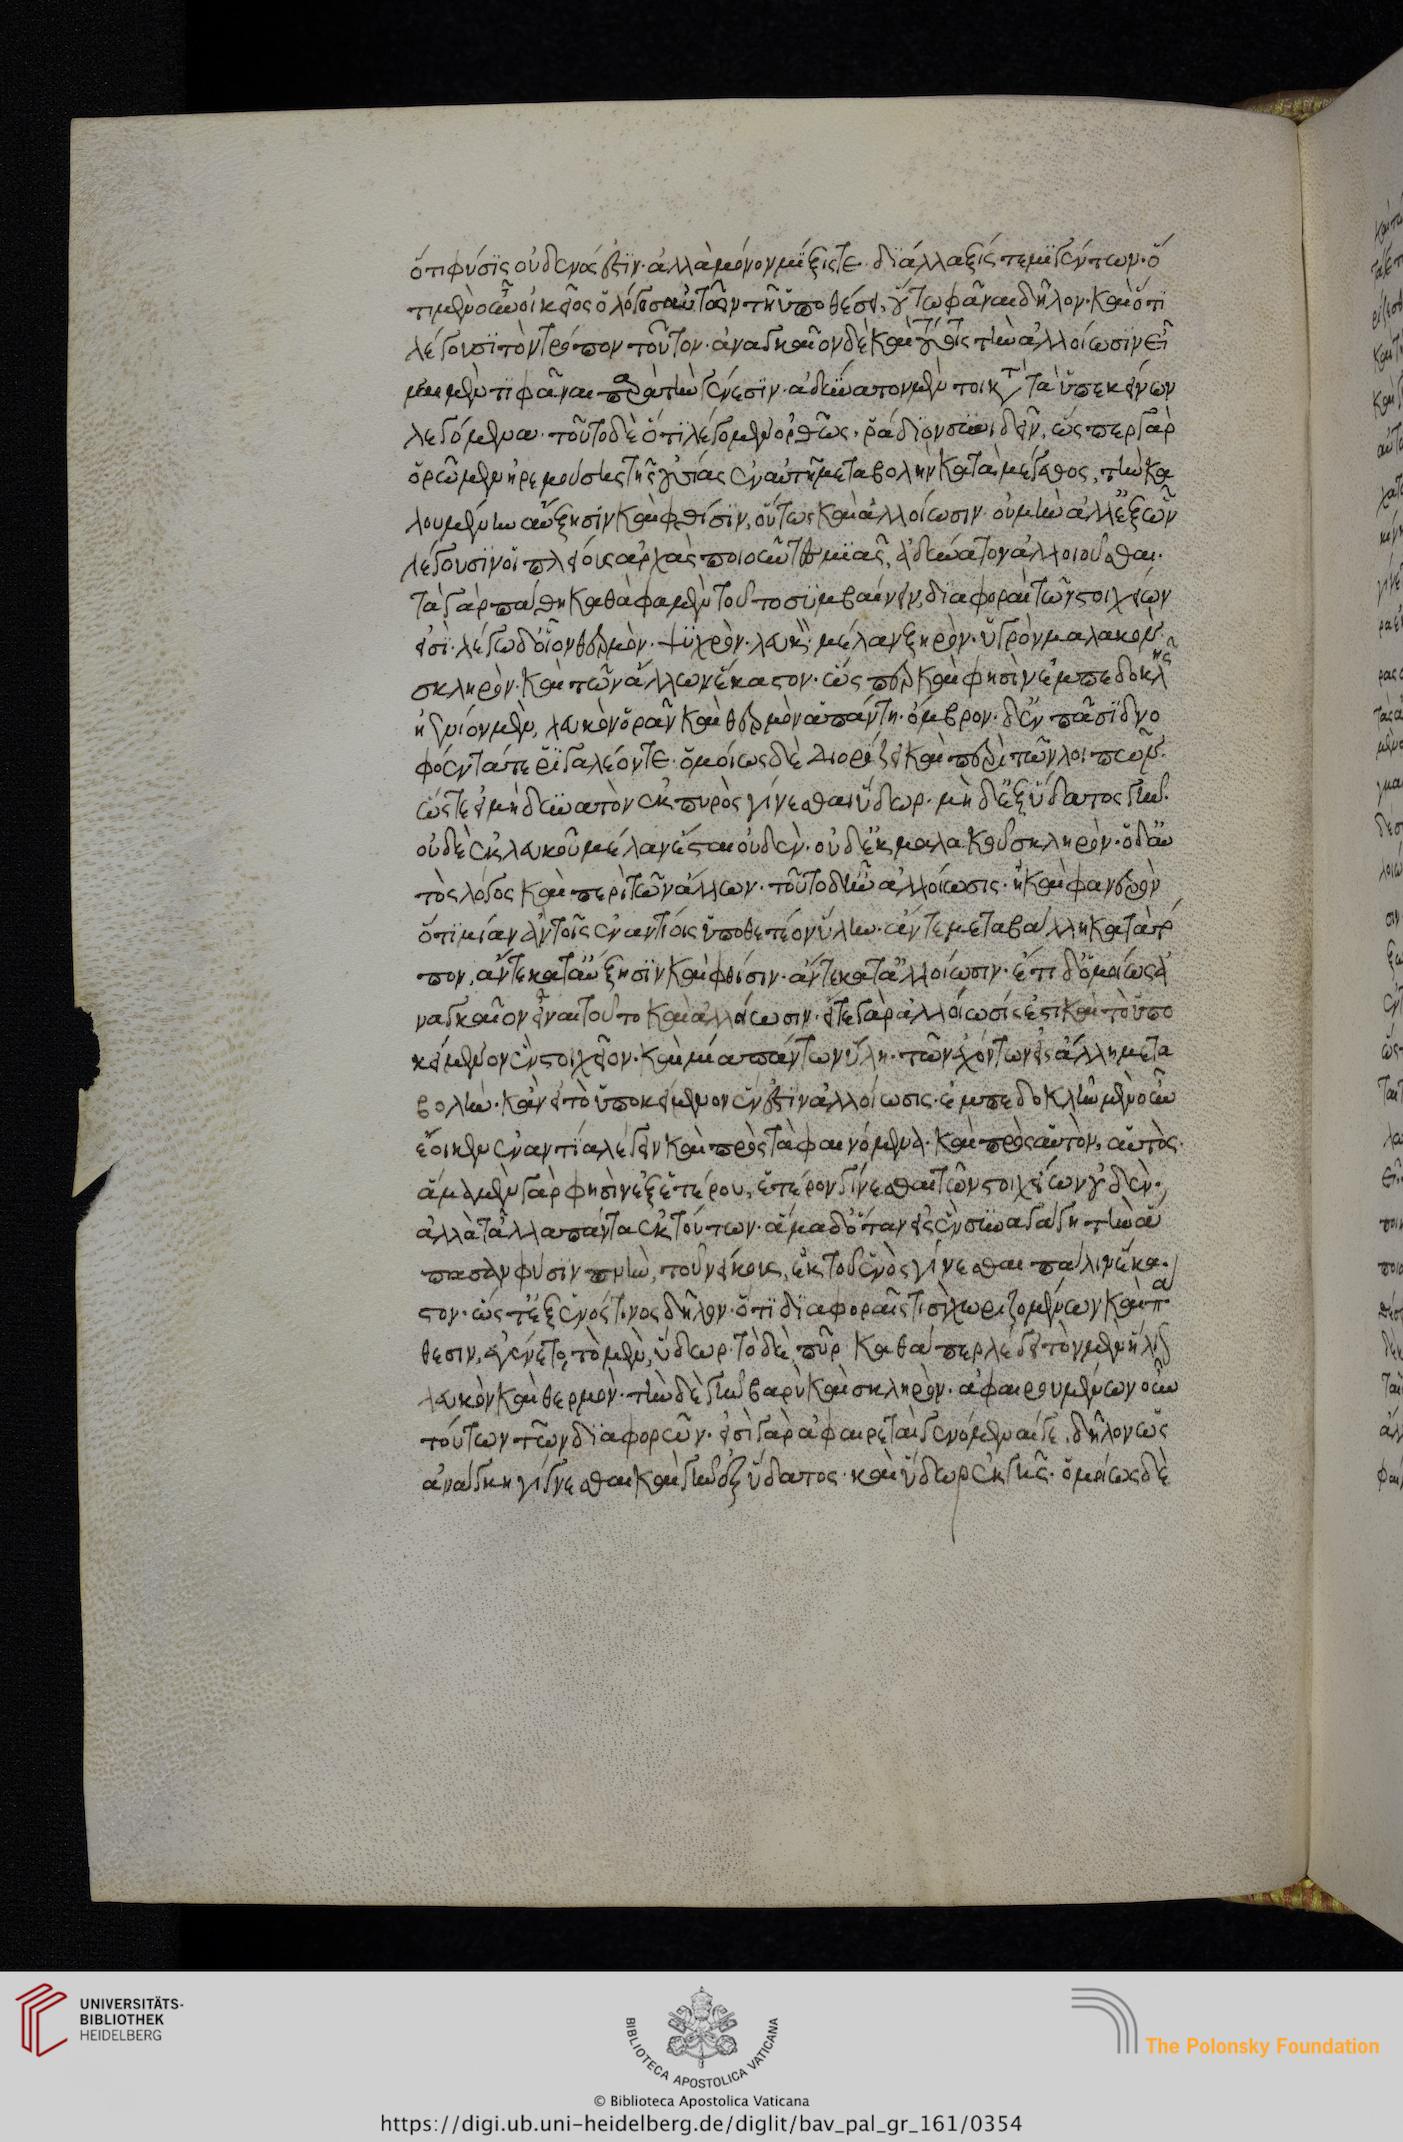 ὅτι φύσις οὐδενός ἐστιν· ἀλλὰ μόνον μῖξίς τε διάλλαξίς τε μιγέντων· ὅ
τι μὲν οὖν οἰκεῖος ὁ λόγος αὐτῶν τῇ ὑποθέσει, οὕτω φάναι δῆλον· καὶ ὅτι
λέγουσι τὸν τρόπον τοῦτον· ἀναγκαῖον δὲ καὶ τούτοις τὴν ἀλλοίωσιν εἶ
ναι μέν τι φάναι παρὰ τὴν γένεσιν· ἀδύνατον μέν τοι κατὰ τὰ ὑπ' ἐκείνων
λεγόμενα· τοῦτο δὲ ὅτι λέγομεν ὀρθῶς, ῥάδιον συνιδεῖν, ὥσπερ γὰρ
ὁρῶμεν ἠρεμούσης τῆς οὐσίας ἐν αὐτῇ μεταβολὴν κατὰ μέγεθος, τὴν κα
λουμένην αὔξησιν καὶ φθίσιν, οὕτως καὶ ἀλλοίωσιν· οὐ μὴν ἀλλ' ἐξ ὧν
λέγουσιν οἱ πλείους ἀρχὰς ποιοῦντες μιᾶς, ἀδύνατον ἀλλοιοῦσθαι·
τὰ γὰρ πάθη καθά φαμεν τοῦτο συμβαίνειν, διαφοραὶ τῶν στοιχείων
εἰσί· λέγω δ' οἷον θερμὸν· ψυχρὸν· λευκὸν· μέλαν ξηρὸν· ὑγρὸν μαλακὸν·
σκληρὸν· καὶ τῶν ἄλλων ἕκαστον· ὥσπερ καὶ φησὶν ἐμπεδοκλῆς
ἠέλιον μὲν, λευκὸν ὁρᾶν καὶ θερμὸν ἁπάντη· ὄμβρον· δ' ἐν πᾶσι δνο
φόεντά τε ῥιγαλέον τε· ὁμοίως δὲ διορίζει καὶ περὶ τῶν λοιπῶν·
ὥστε εἰ μὴ δυνατὸν ἐκ πυρὸς γίνεσθαι ὕδωρ· μὴ δ' ἐξ ὕδατος γῆν·
οὐδὲ ἐκ λευκοῦ μέλαν ἔσται οὐδὲν· οὐδ' ἐκ μαλακοῦ σκληρὸν· ὁ δ' αὐ
τὸς λόγος καὶ περὶ τῶν ἄλλων· τοῦτο δ' ἦν ἀλλοίωσις· ἢ καὶ φανερὸν
ὅτι μίαν ἀεὶ τοῖς ἐναντίοις ὑποθετέον ὕλην· ἄν τε μεταβάλλη κατὰ τό
πον, ἄν τε κατὰ αὔξησιν καὶ φθίσιν· ἄν τε κατὰ ἀλλοίωσιν· ἔτι δ' ὁμοίως ἀ
ναγκαῖον εἶναι τοῦτο καὶ ἀλλοίωσιν· εἴτε γὰρ ἀλλοίωσίς ἐστι καὶ τὸ ὑπο
κείμενον ἓν στοιχεῖον· καὶ μία πάντων ὕλη· τῶν ἐχόντων εἰς ἄλληλα μετα
βολὴν· κἂν εἰ τὸ ὑποκείμενον ἕν ἐστιν ἀλλοίωσις· ἐμπεδοκλῆς μὲν οὖν
ἔοικεν ἐναντία λέγειν καὶ πρὸς τὰ φαινόμενα· καὶ πρὸς αὑτὸν, αὐτὸς·
ἅμα μὲν γὰρ φησὶν ἐξ ἑτέρου, ἕτερον γίνεσθαι τῶν στοιχείων οὐδὲν·
ἀλλὰ τἆλλα πάντα ἐκ τούτων· ἅμα δ' ὅταν εἰς ἓν συναγάγῃ τὴν ἅ
πασαν φύσιν πλὴν, τοῦ νείκους, ἐκ τοῦ ἑνὸς γίνεσθαι πάλιν ἕκα·
στον· ὥστ' ἐξ ἑνός τινος δῆλον· ὅτι διαφοραῖς τισὶ χωριζομένων καὶ πά
θεσιν, ἐγένετο, τὸ μὲν, ὕδωρ· τὸ δὲ πῦρ καθάπερ λέγει τὸν μὲν ἥλιον
λευκὸν καὶ θερμὸν· τὴν δὲ γῆν βαρὺ καὶ σκληρὸν· ἀφαιρουμένων οὖν
τούτων τῶν διαφορῶν· εἰσὶ γὰρ ἀφαιρεταὶ γενόμεναί γε, δῆλον ὡς
ἀνάγκη γίγνεσθαι καὶ γῆν ἐξ ὕδατος· καὶ ὕδωρ ἐκ γῆς· ὁμοίως δὲ
UNIVERSITÄTS-
BIBLIOTHEK
HEIDELBERG
BIBLIOTECA APOSTOLICA VATICANA
© Biblioteca Apostolica Vaticana
The Polonsky Foundation
https://digi.ub.uni-heidelberg.de/diglit/bav_pal_gr_161/0354